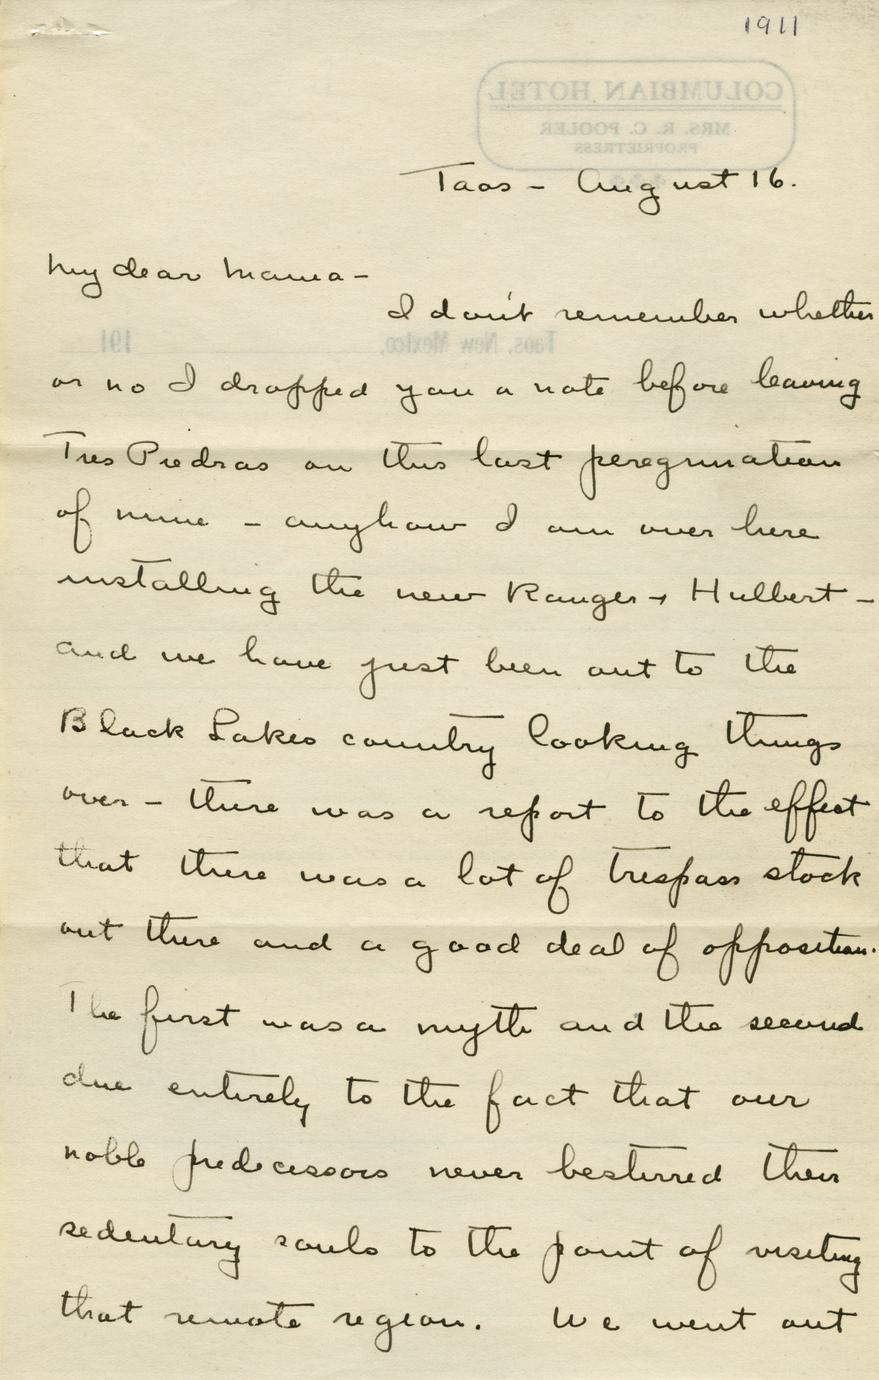 1911
COLUMBIAN HOTEL
MRS. R. C. POOLER
PROPRIETRESS
Taos - August 16.
My dear Mama -
I don't remember whether
Taos, New Mexico, 191
or no I dropped you a note before leaving
Tres Piedras on this last peregrination
of mine - anyhow I am over here
installing the new Ranger - Hulbert -
and we have just been out to the
Black Lakes country looking things
over - there was a report to the effect
that there was a lot of trespass stock
out there and a good deal of opposition.
The first was a myth and the second
due entirely to the fact that our
noble predecessors never bestirred their
sedentary souls to the point of visiting
that remote region. We went out